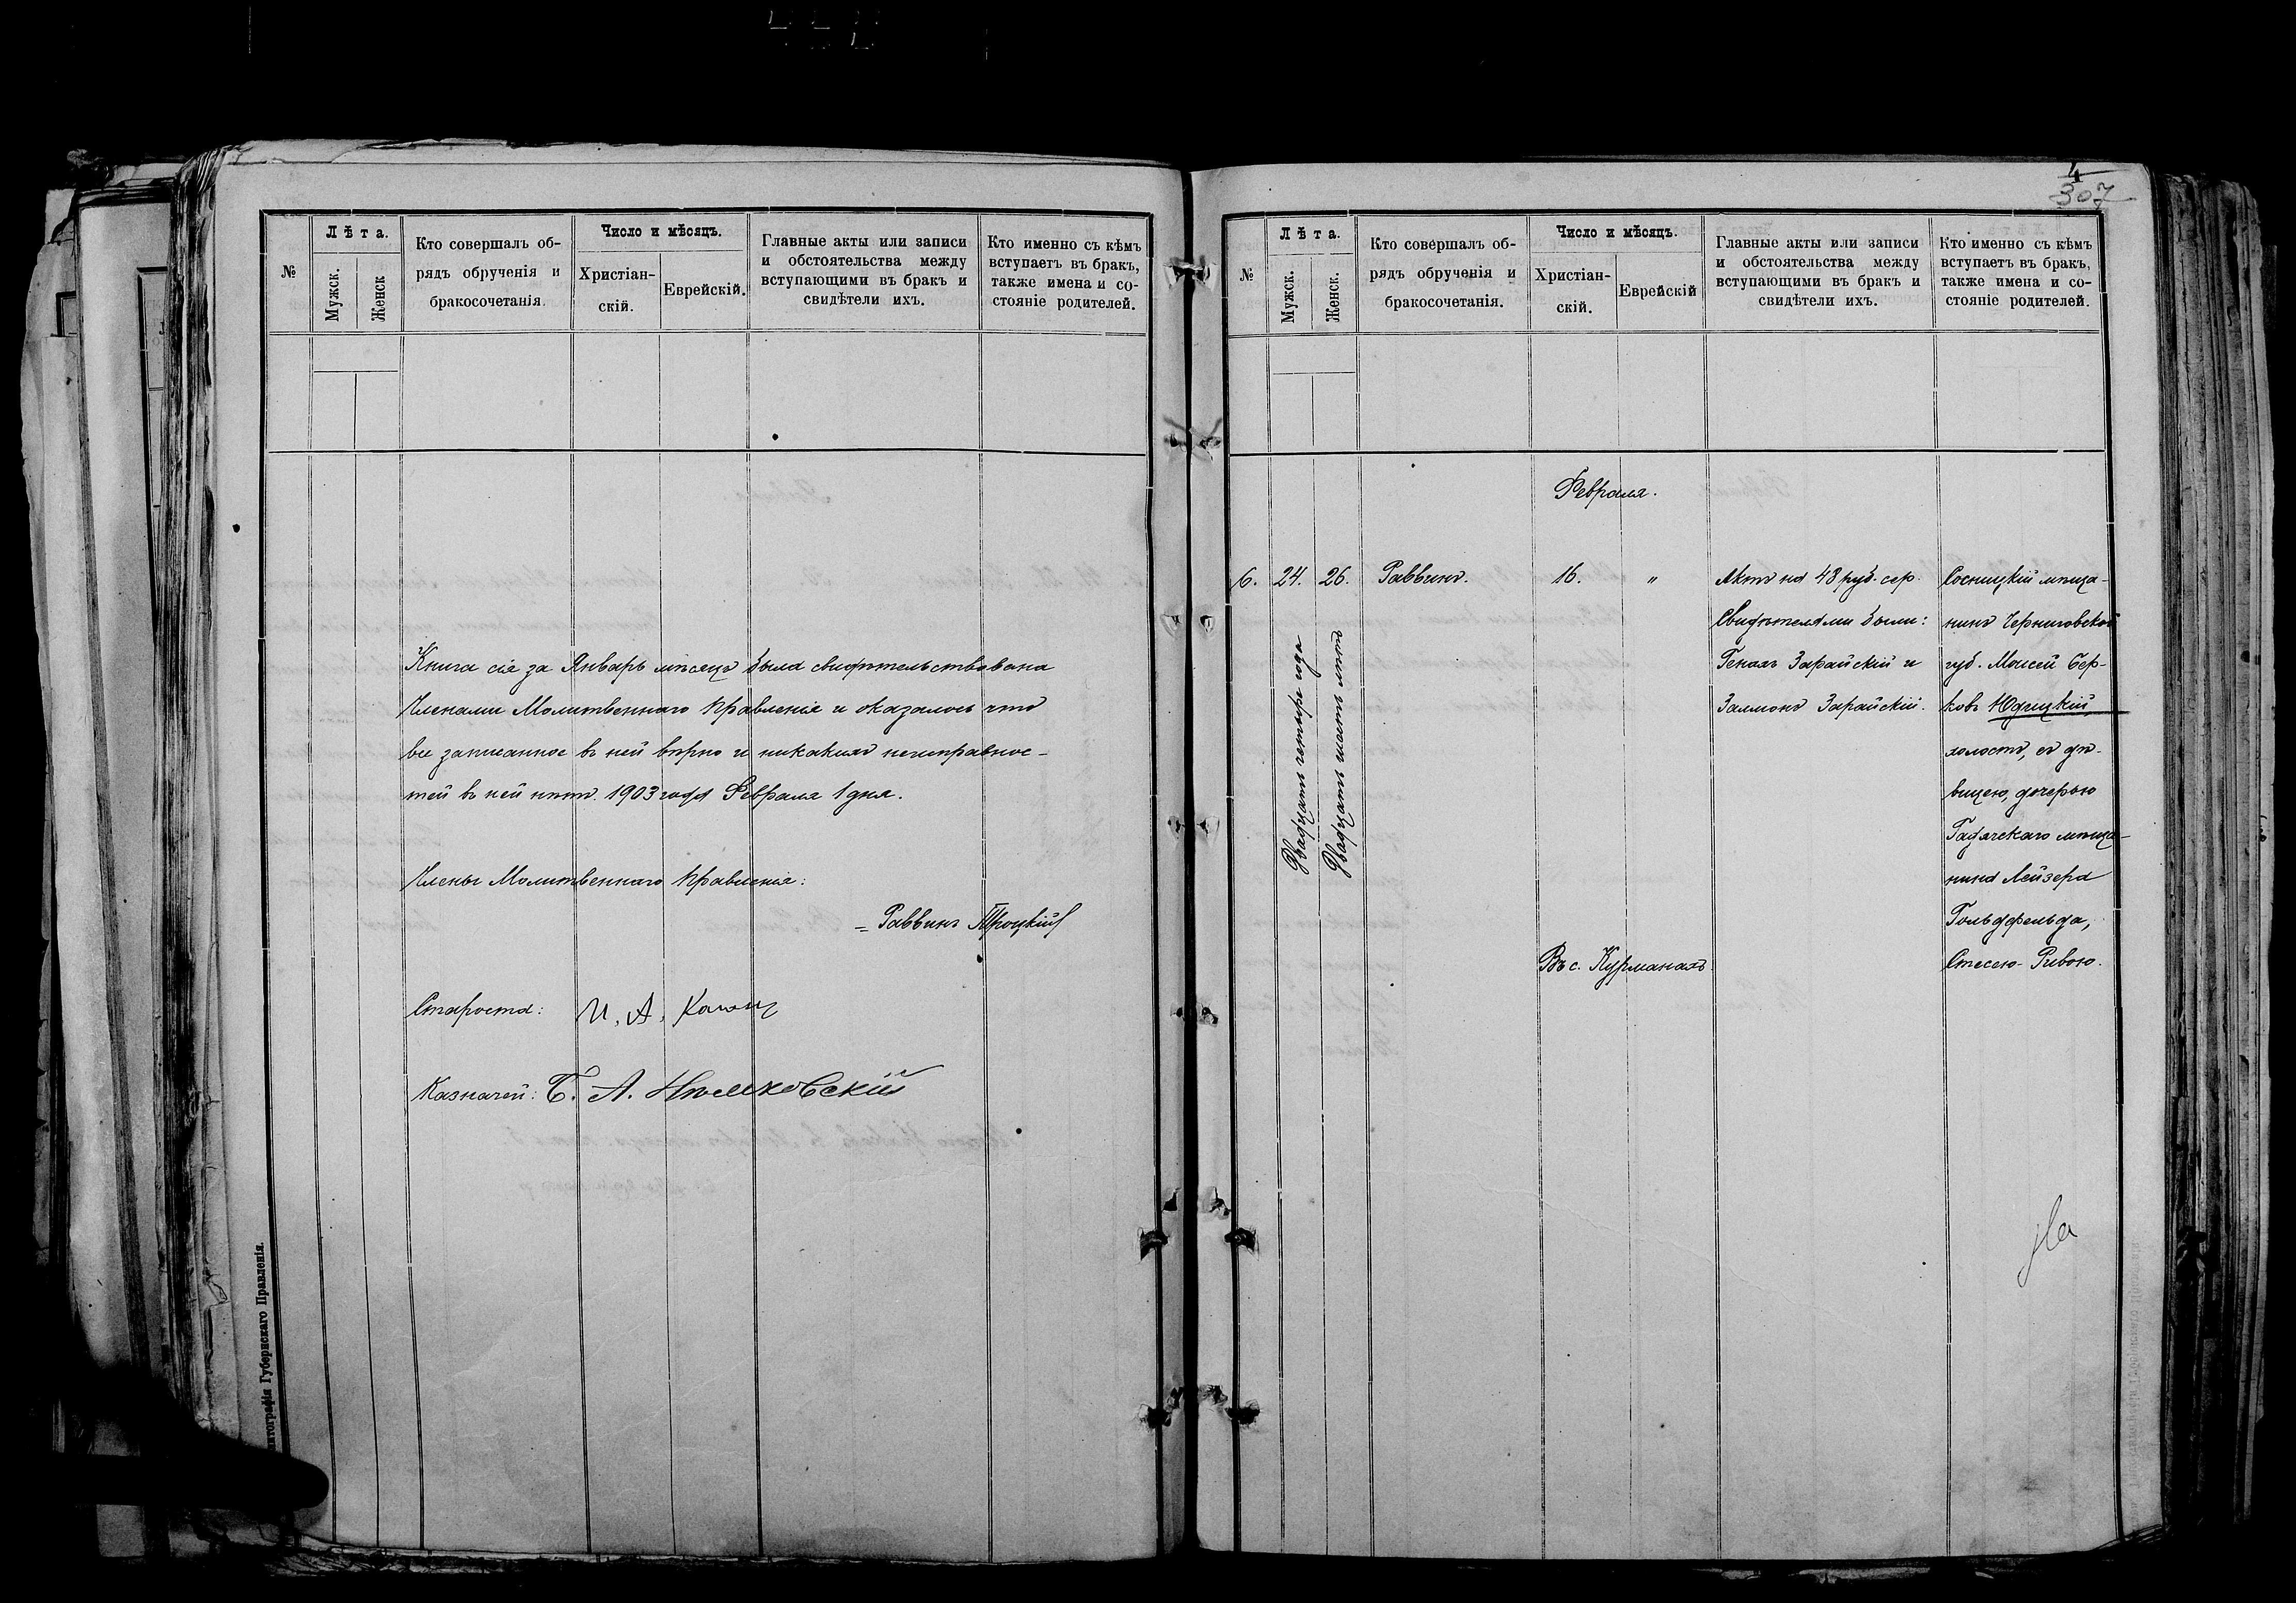 №
Лѣта.
Мужск.
Женск
Кто совершалъ об-
рядъ обрученія и
бракосочетанія.
Число и мѣсяцъ.
Христіан-
скій.
Еврейскій.
Главные акты или записи
и обстоятельства между
вступающими въ бракъ и
свидѣтели ихъ.
Кто именно съ кѣмъ
вступаетъ въ бракъ,
также имена и со-
стояніе родителей.
Книга сія за Январь мѣсяцъ была свидѣтельствована
Членами Молитвеннаго Правленія и оказалось что
все записанное въ ней вѣрно и никакихъ неисправнос-
тей въ ней нѣтъ. 1903 года Февраля 1 дня.
Члены Молитвеннаго Правленія:
= Раввинъ Троцкій
Староста: И. А.
Казначей: Б. А.
Губернскаго Правленія.
4
307
№
Лѣта.
Мужск.
Женск.
Кто совершалъ об-
рядъ обрученія и
бракосочетанія.
Число и мѣсяцъ.
Христіан-
скій.
Еврейскій
Главные акты или записи
и обстоятельства между
вступающими въ бракъ и
свидѣтели ихъ.
Кто именно съ кѣмъ
вступаетъ въ бракъ,
также имена и со-
стояніе родителей.
Февраля.
6. 24. 26. Раввинъ. 16. "
Двадцать четыре года
Двадцать шесть лѣтъ
Въ с. Курманахъ.
Актъ на 48 руб. сер.
Свидѣтелями были:
Генахъ Зарайскій и
Залмонъ Зарайскій.
Сосницкій мѣща-
нинъ Черниговской
губ. Моисей Бер-
ковъ Юдицкій,
холостъ, съ дѣ-
вицею, дочерью
Гадячскаго мѣща-
нина Лейзера
Гольдфельда,
Стесею-Ривою.